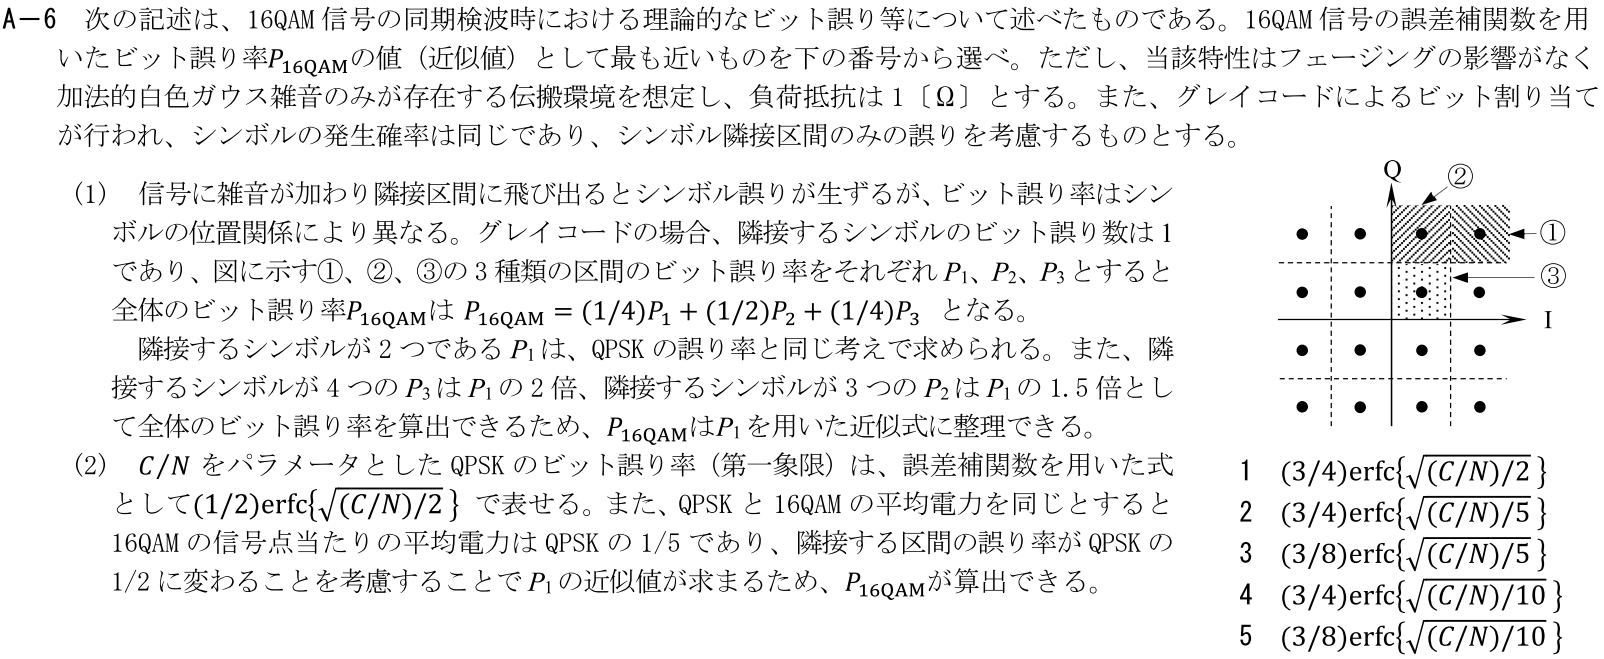 A－6 次の記述は、16QAM 信号の同期検波時における理論的なビット誤り等について述べたものである。16QAM 信号の誤差補関数を用
いたビット誤り率P16QAMの値（近似値）として最も近いものを下の番号から選べ。ただし、当該特性はフェージングの影響がなく
加法的白色ガウス雑音のみが存在する伝搬環境を想定し、負荷抵抗は 1〔Ω〕とする。また、グレイコードによるビット割り当て
が行われ、シンボルの発生確率は同じであり、シンボル隣接区間のみの誤りを考慮するものとする。
(1) 信号に雑音が加わり隣接区間に飛び出るとシンボル誤りが生ずるが、ビット誤り率はシン
ボルの位置関係により異なる。グレイコードの場合、隣接するシンボルのビット誤り数は 1
であり、図に示す①、②、③の 3 種類の区間のビット誤り率をそれぞれ P1、P2、P3 とすると
全体のビット誤り率P16QAMは P16QAM = (1/4)P1 + (1/2)P2 + (1/4)P3 となる。
隣接するシンボルが 2 つである P1 は、QPSK の誤り率と同じ考えで求められる。また、隣
接するシンボルが 4 つの P3 は P1 の 2 倍、隣接するシンボルが 3 つの P2 は P1 の 1.5 倍とし
て全体のビット誤り率を算出できるため、P16QAMはP1 を用いた近似式に整理できる。
(2) C/N をパラメータとした QPSK のビット誤り率（第一象限）は、誤差補関数を用いた式
として(1/2)erfc{√(C/N)/2 } で表せる。また、QPSK と 16QAM の平均電力を同じとすると
16QAM の信号点当たりの平均電力は QPSK の 1/5 であり、隣接する区間の誤り率が QPSK の
1/2 に変わることを考慮することで P1 の近似値が求まるため、P16QAMが算出できる。
Q
②
①
③
I
1 (3/4)erfc{√(C/N)/2 }
2 (3/4)erfc{√(C/N)/5 }
3 (3/8)erfc{√(C/N)/5 }
4 (3/4)erfc{√(C/N)/10 }
5 (3/8)erfc{√(C/N)/10 }